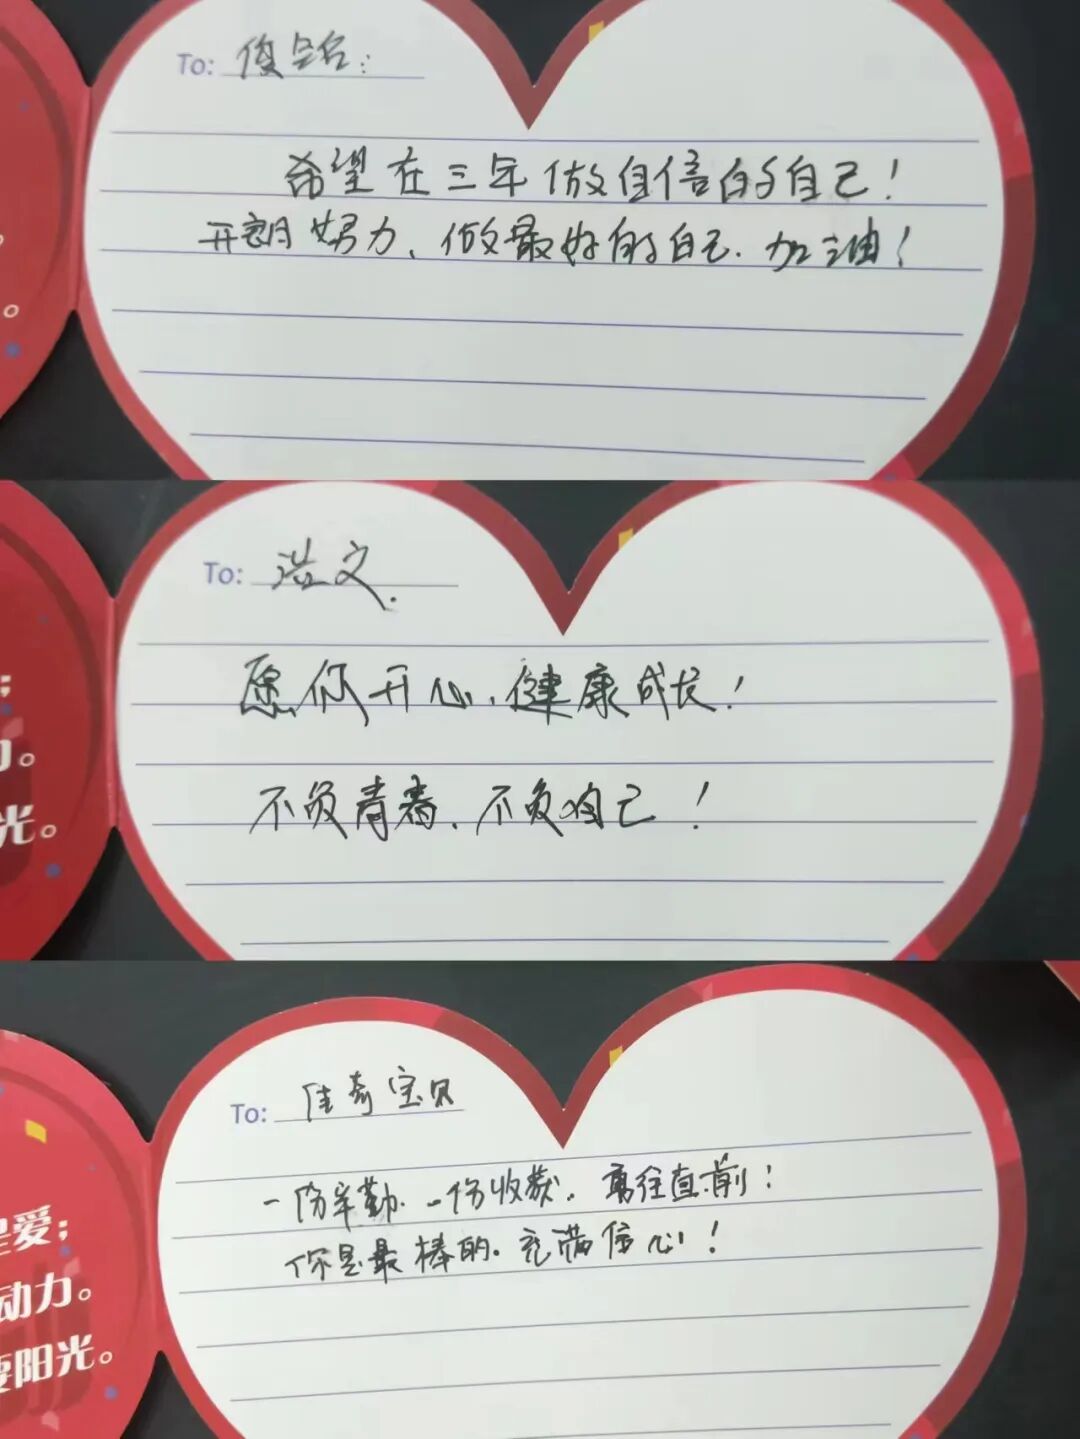 To: 俊铭：
希望在三年做自信的自己！
开朗努力、做最好的自己.加油！
。
To: 浩文.
愿你开心,健康成长！
不负青春.不负自己！
；
。
光。
To: 佳奇宝贝
一份辛勤.一份收获.勇往直前！
你是最棒的.充满信心！
是爱；
动力。
要阳光。